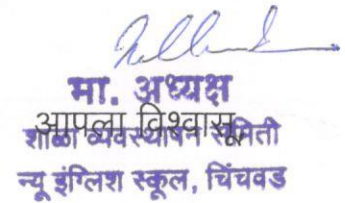 मा. अध्यक्ष
आपला विश्वासू,
शाळा व्यवस्थापन समिती
न्यू इंग्लिश स्कूल, चिंचवड